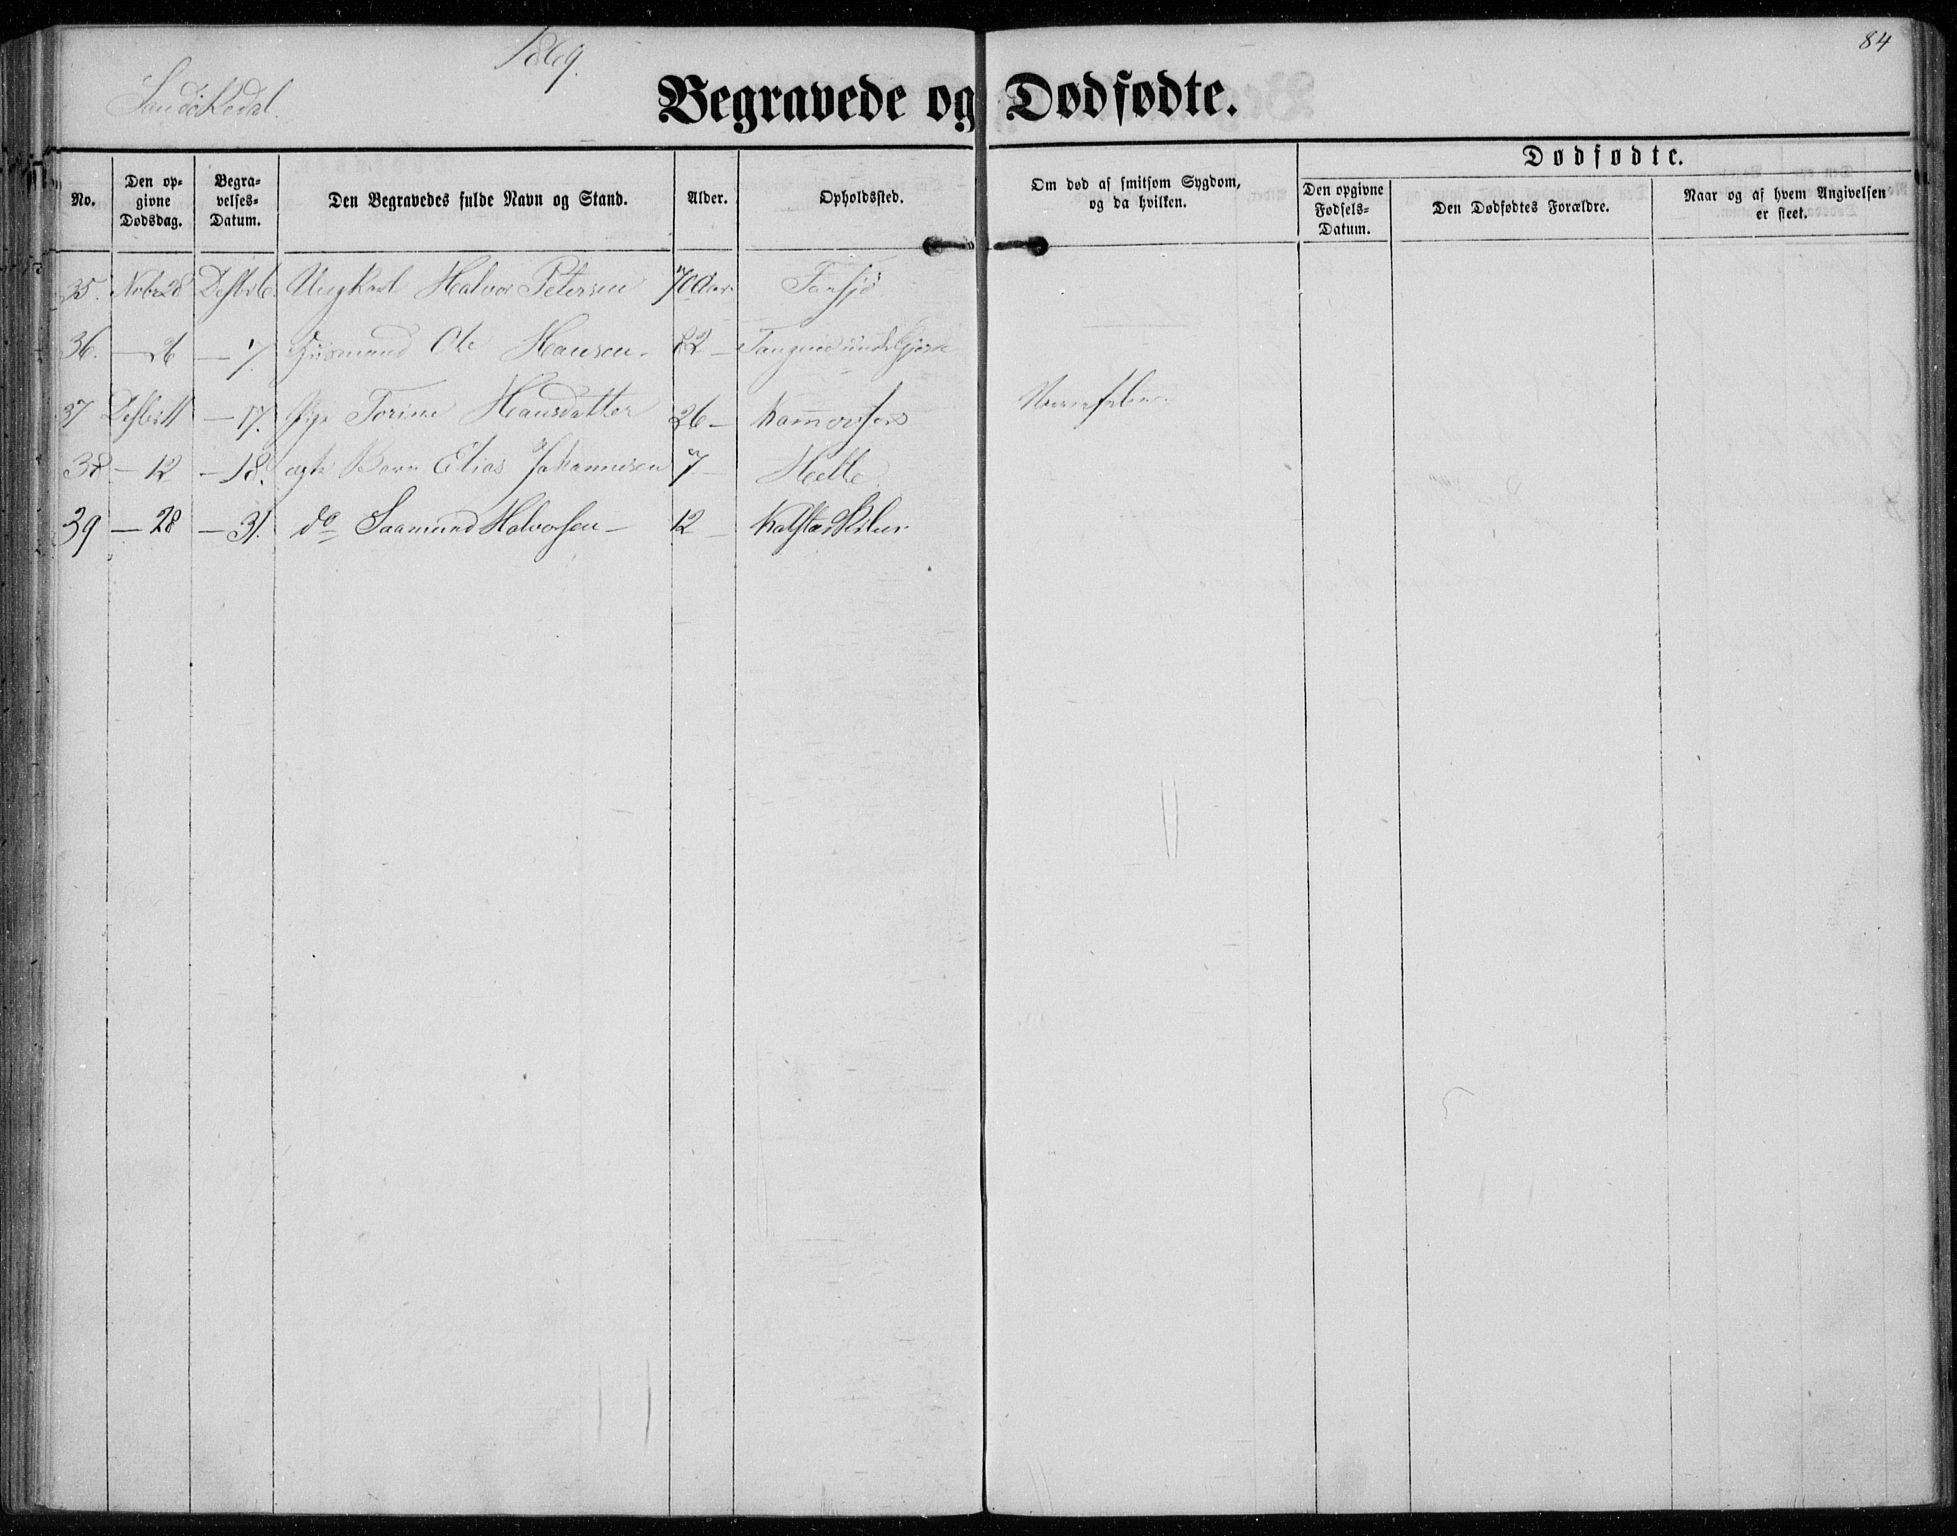 1869.
84
Sandökedal.
Begravede og Dødfødte.
No.
Den op-
givne
Dødsdag.
Begra-
velses-
Datum.
Den Begravedes fulde Navn og Stand.
Alder.
Opholdssted.
Om død af smitsom Sygdom,
og da hvilken.
Dødfødte.
Den opgivne
Fødsels-
Datum.
Den Dødfødtes Forældre.
Naar og af hvem Angivelsen
er skeet.
35. Novbr 28 Desbr 6. Ungkarl Halvor Petersen 70 Aar. Farsjö
36. — 26 — 7. Huusmand Ole Hansen. 82 — Tangene under
37 Desbr 11 — 17. Pige Torine Hansdatter 26 — Kammerfos
38 — 12 — 18. ægte Barn Elias Johannesen 7 — Helle
39 — 28 — 31. do Saamund Halvorsen — 12 —